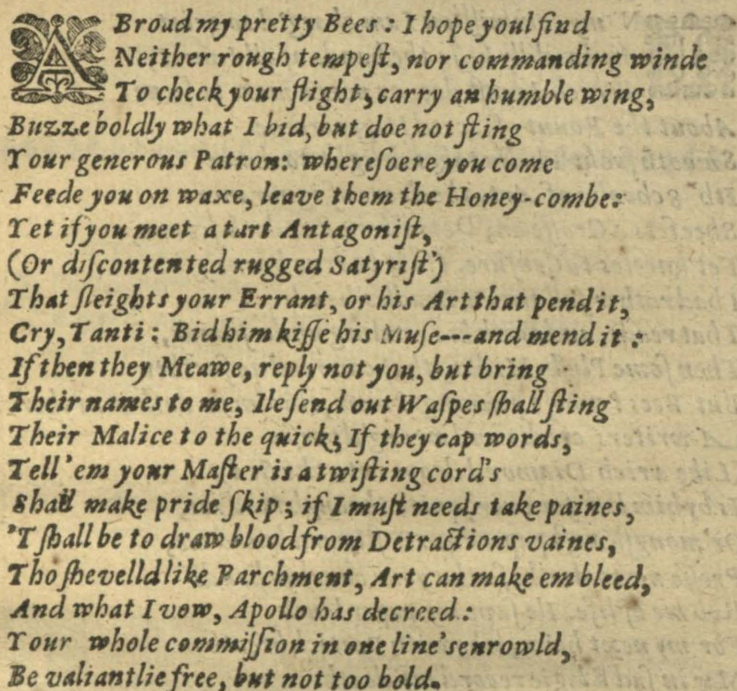 ABroad my pretty Bees: I hope youl find
Neither rough tempeſt, nor commanding winde
To check your flight, carry an humble wing,
Buzze boldly what I bid, but doe not ſting
Your generous Patron: whereſoere you come
Feede you on waxe, leave them the Honey-combe:
Yet if you meet a tart Antagoniſt,
(Or diſcontented rugged Satyriſt)
That ſleights your Errant, or his Art that pend it,
Cry, Tanti: Bid him kiſſe his Muſe---and mend it:
If then they Meawe, reply not you, but bring
Their names to me, Ile ſend out Waſpes ſhall ſting
Their Malice to the quick; If they cap words,
Tell'em your Maſter is a twiſting cord's
Shall make pride ſkip; if I muſt needs take paines,
'T ſhall be to draw blood from Detractions vaines,
Tho ſhevelld like Parchment, Art can make em bleed,
And what I vow, Apollo has decreed:
Your whole commiſſion in one line's enrowld,
Be valiantlie free, but not too bold.